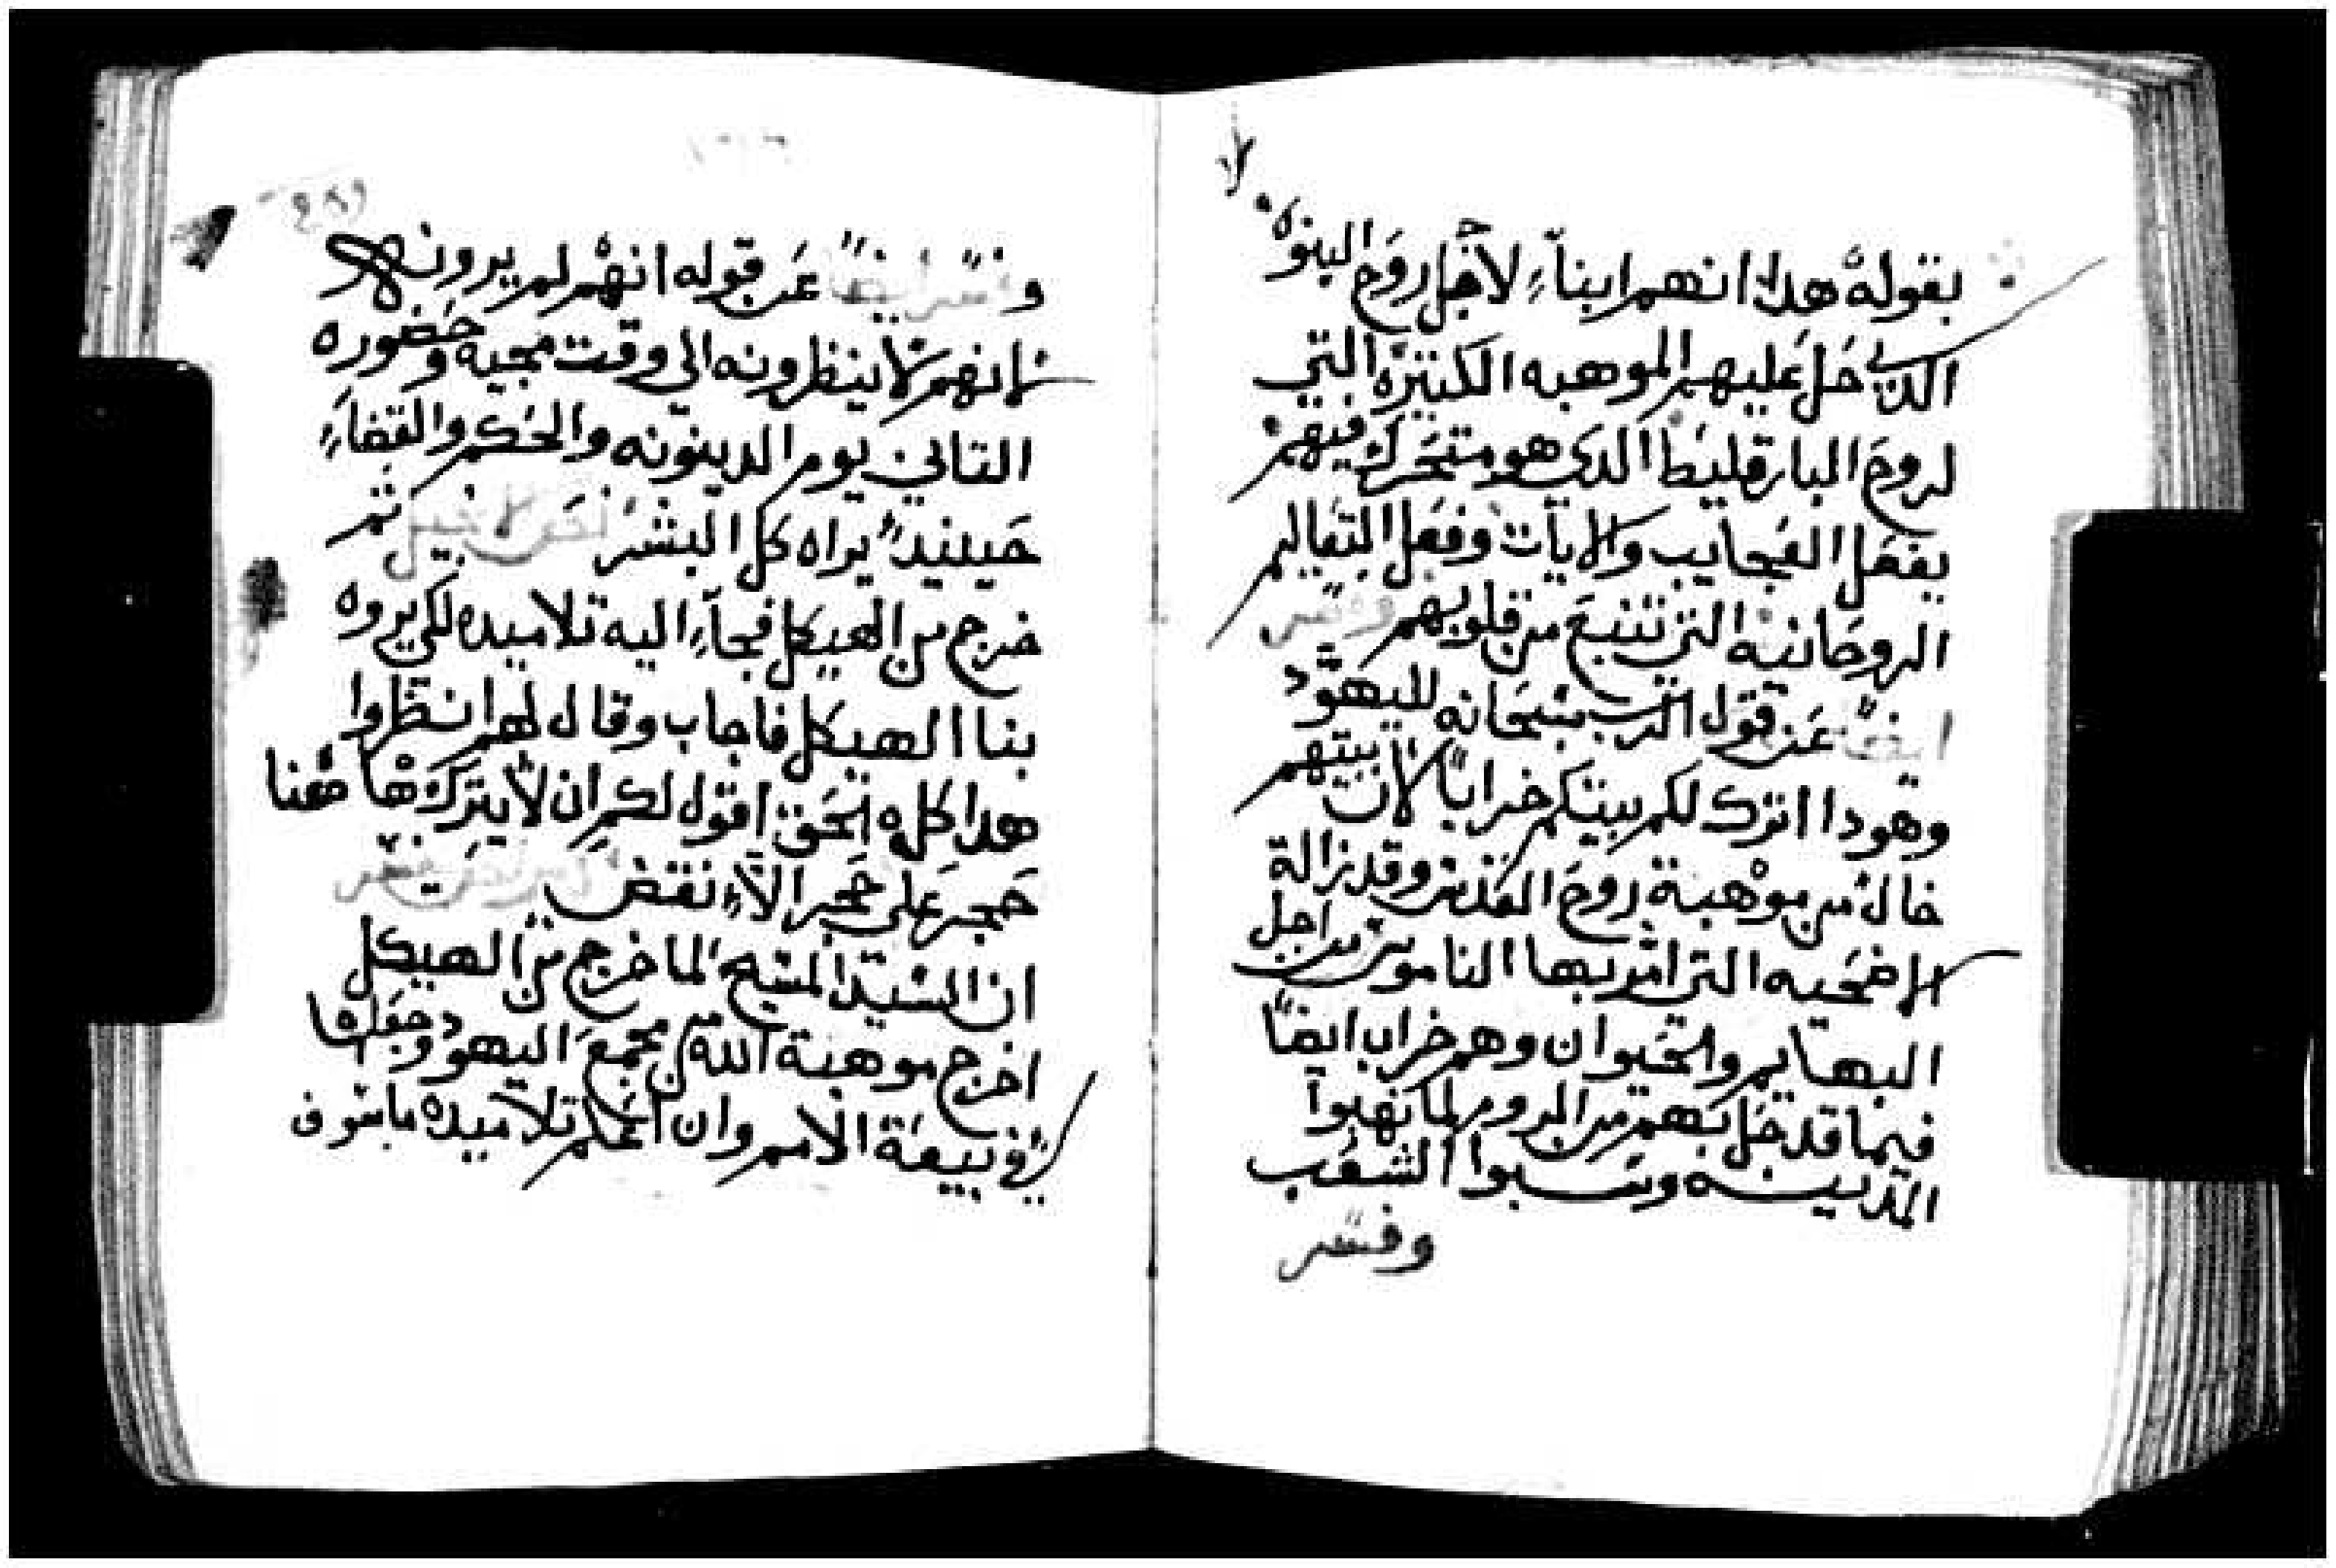 بقوله هدا انهم ابناء لاجل روح البنوه
الدي حل عليهم الموهبه الكبيره التي
لروح البارقليط الدي هو متحرك فيهم
بفعل العجايب والايات وفعل التعاليم
الروحانيه التي تنبع من قلوبهم وفسر
ايضا عن قول الرب سبحانه لليهود
وهودا اترك لكم بيتكم خرابا لان بيتهم
خال من موهبة روح القدس وقد زالة
الاضحيه التي امر بها الناموس من اجل
البهايم والحيوان وهم خراب ايضا
فيما قد حل بهم من الروم لما نهبوا
المدينه وسبوا الشعب
وفسر
وفسر ايضا عن قوله انهم لم يرونه
انهم لا ينظرونه الي وقت مجيه وحضوره
التاني يوم الدينونه والحكم والقضاء
حينيد يراه كل البشر ثم
خرج من الهيكل فجاء اليه تلاميده لكي يروه
بنا الهيكل فاجاب وقال لهم انظروا
هدا كله الحق اقول لكم ان لا يترك هاهنا
حجر علي حجر الاء نقض
ان السيد المسيح لما خرج من الهيكل
اخرج موهبة الله من مجمع اليهود وجعلها
في بيعة الامم وان اعلم تلاميده ما سوف